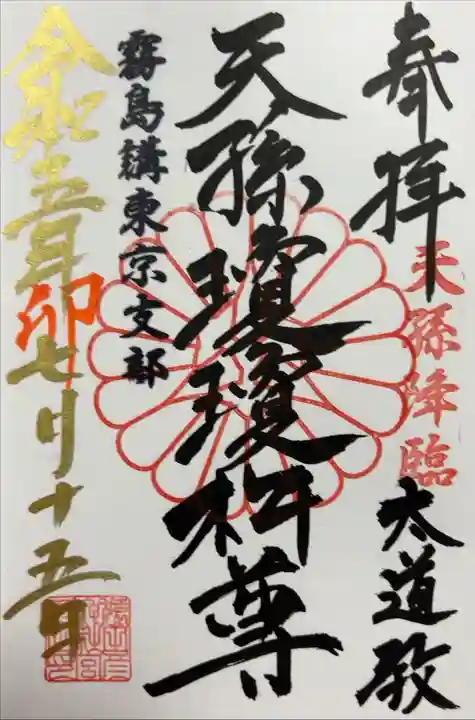 奉拝
天孫降臨
太道教
天孫瓊瓊杵尊
霧島講東京支部
令和五年七月十五日
卯